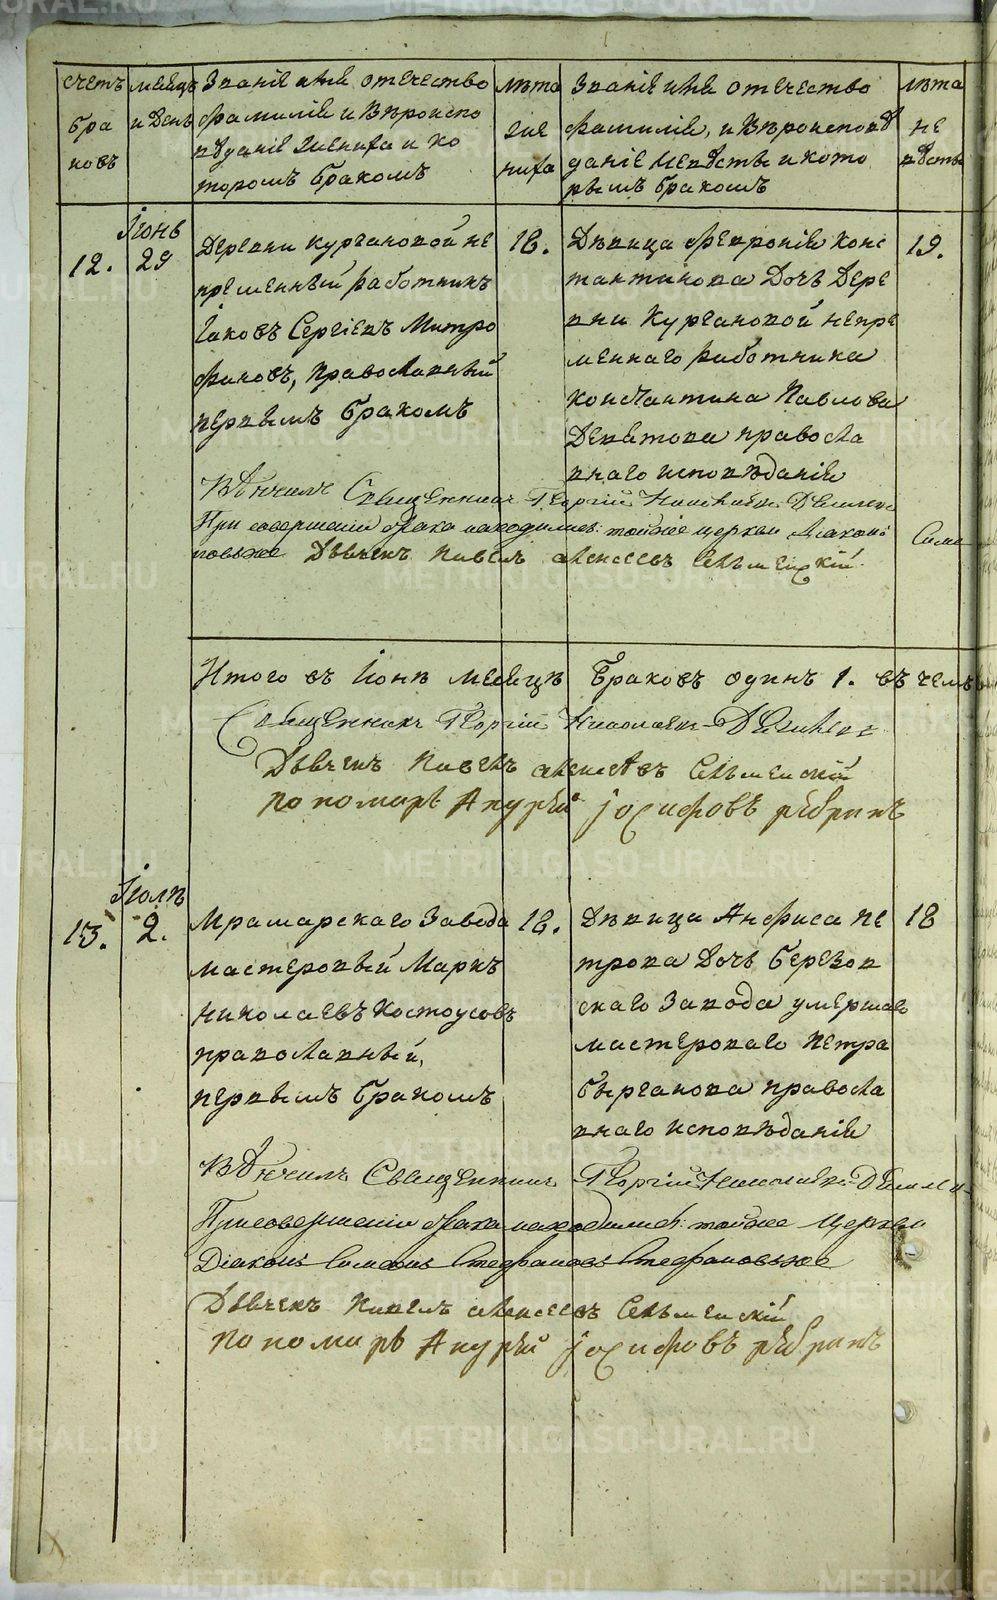 счетъ бра ковъ
мѣсяцъ и День
Званіе имя отечество
фамилія и Вѣроиспо
вѣданіе жениха и ко
торомъ бракомъ
лѣта
же
ниха
Званіе имя отечество
фамилія, и Вѣроисповѣ
даніе невѣсты и кото
рымъ бракомъ
лѣта
не
вѣсты
Іюнь
12.
29
Деревни Кургановой не
премѣнный работникъ
Іаковъ Сергіевъ Митро
фановъ, православный
первымъ бракомъ
18.
Дѣвица Февронія Конс
тантинова Дочь Дере
вни Кургановой непре
мѣннаго работника
Константина Павлова
Девятова правосла
внаго исповѣданія
19.
Вѣнчалъ Священникъ Георгій Николаевъ
При совершеніи брака находились: тойже церкви Діаконъ
Дьячекъ Павелъ Алексеевъ Сельменскій
Итого въ Іюнѣ мѣсяцѣ Браковъ одинъ 1. въ чемъ
Священникъ Георгій Николаевъ
Дьячекъ Павелъ Алексеевъ Сельменскій
Пономарь Андрей Іосифовъ Рѣбринъ
Іюль
13.
2.
Мраморскаго Завода
мастеровый Маркъ
Николаевъ Костоусовъ
православный,
первымъ бракомъ
18.
Дѣвица Анфиса Пе
трова Дочь Березов
скаго Завода умершаго
мастероваго Петра
правосла
внаго исповѣданія
18
Вѣнчалъ Священникъ Георгій Николаевъ
При совершеніи брака находились: тойже Церкви
Діаконъ Симеонъ Стефановъ
Дьячекъ Павелъ Алексеевъ Сельменскій
Пономарь Андрей Іосифовъ Рѣбринъ
METRIKI.GASO-URAL.RU